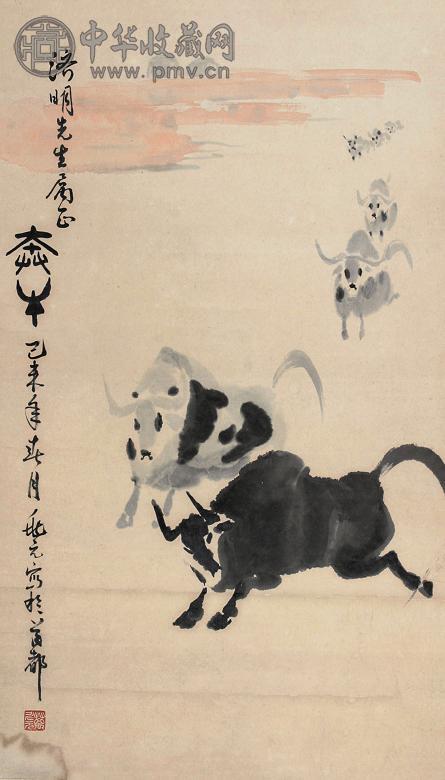 中华收藏网
www.pmv.cn
明先生属正
奔牛
己未年春月 元寫於首都